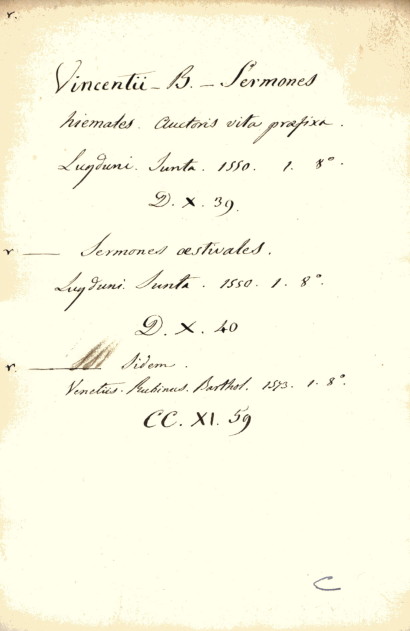 r.
Vincentii - B. - Sermones
hiemales. Auctoris vita præfixa.
Lugduni. Junta. 1550. 1. 8°.
D. X. 39.
r — Sermones æstivales.
Lugduni. Junta. 1550. 1. 8°.
D. X. 40
r. — Iidem.
Venetiis. Rubinus. Barthol. 1573. 1. 8°.
CC. XI. 59
C